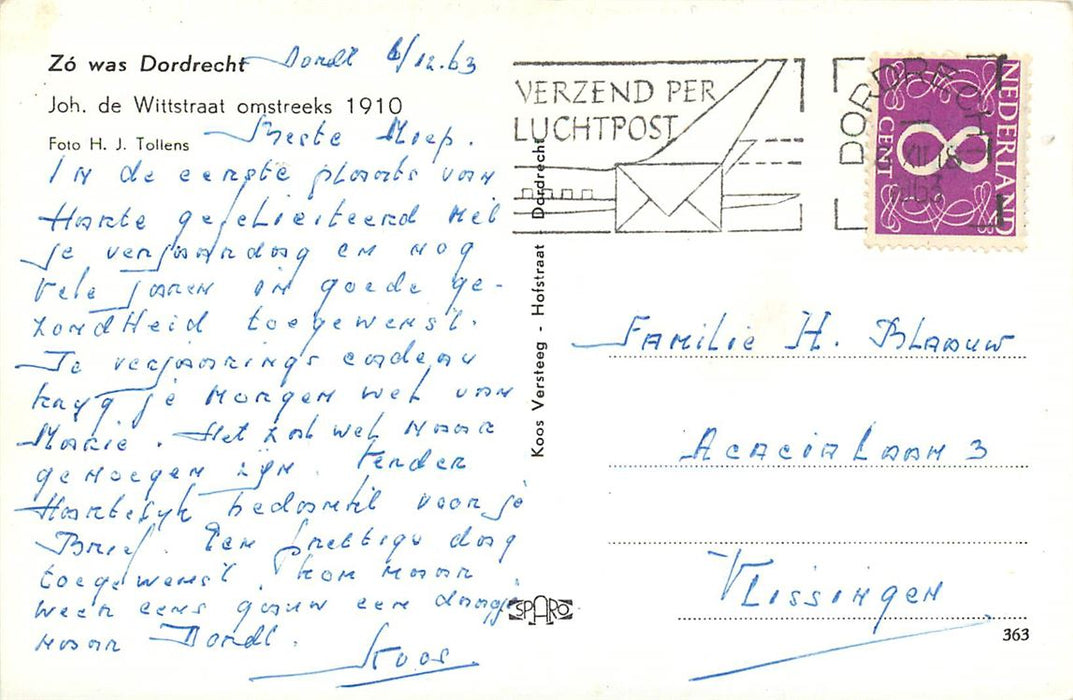 Zó was Dordrecht
Dordt 6/12.63
Joh. de Wittstraat omstreeks 1910
Foto H. J. Tollens
Beste Miep.
In de eerste plaats van
Harte gefeliciteerd met
je verjaardag en nog
vele jaren in goede ge-
zondheid toegewenst.
Je verjaarings cadeau
kryg je morgen wel van
Marie. Het zal wel naar
genoegen zyn. Verder
Hartelyk bedankt voor je
Brief. Een prettige dag
toegewenst, kom maar
weer eens gauw een daagje
naar Dordt.
Koos.
Koos Versteeg - Hofstraat - Dordrecht
SPARO
VERZEND PER
LUCHTPOST
DORDRECHT
XII
1963
NEDERLAND
8
CENT
Familie H. Blaauw
Acacialaan 3
Vlissingen
363